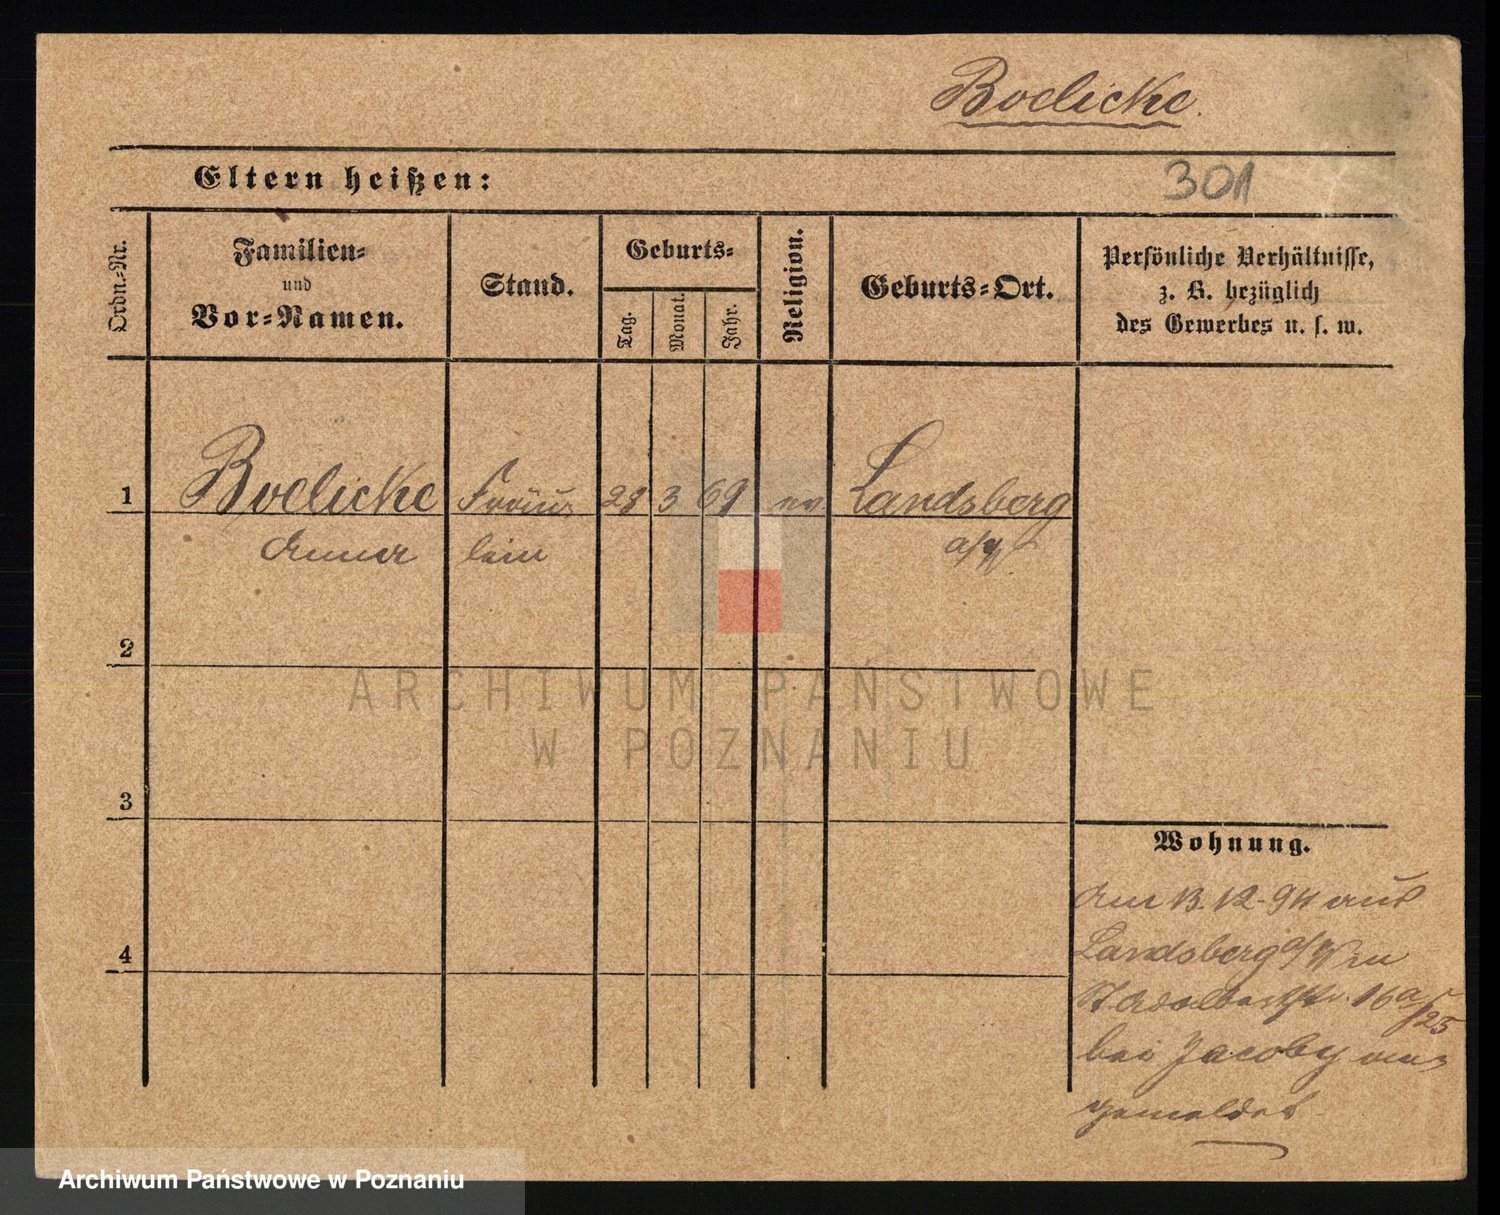 Boelicke.
Eltern heißen:
301
Ordn.-Nr.
Familien-
und
Vor-Namen.
Stand.
Geburts-
Tag.
Monat.
Jahr.
Religion.
Geburts-Ort.
Persönliche Verhältnisse,
z. B. bezüglich
des Gewerbes u. s. w.
1 Boelicke Fräu- 28 3 69 ev. Landsberg
Anna lein a/W.
2
3
4
Wohnung.
Am 13.12.94 aus
Landsberg a/W in
St. Adalbertstr. 16a/25
bei Jacoby an-
gemeldet.
ARCHIWUM PAŃSTWOWE
W POZNANIU
Archiwum Państwowe w Poznaniu